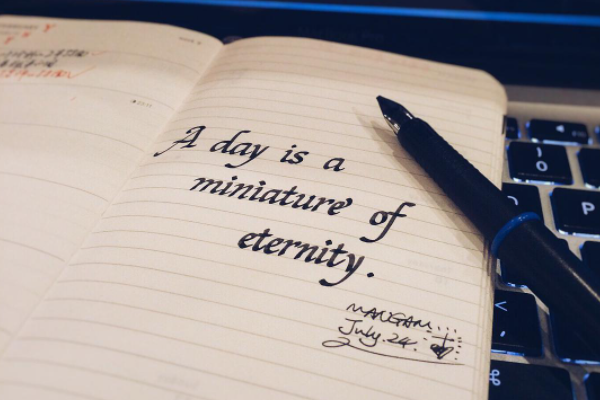 A day is a
miniature of
eternity.
July. 24.
O
P
<
,
⌘